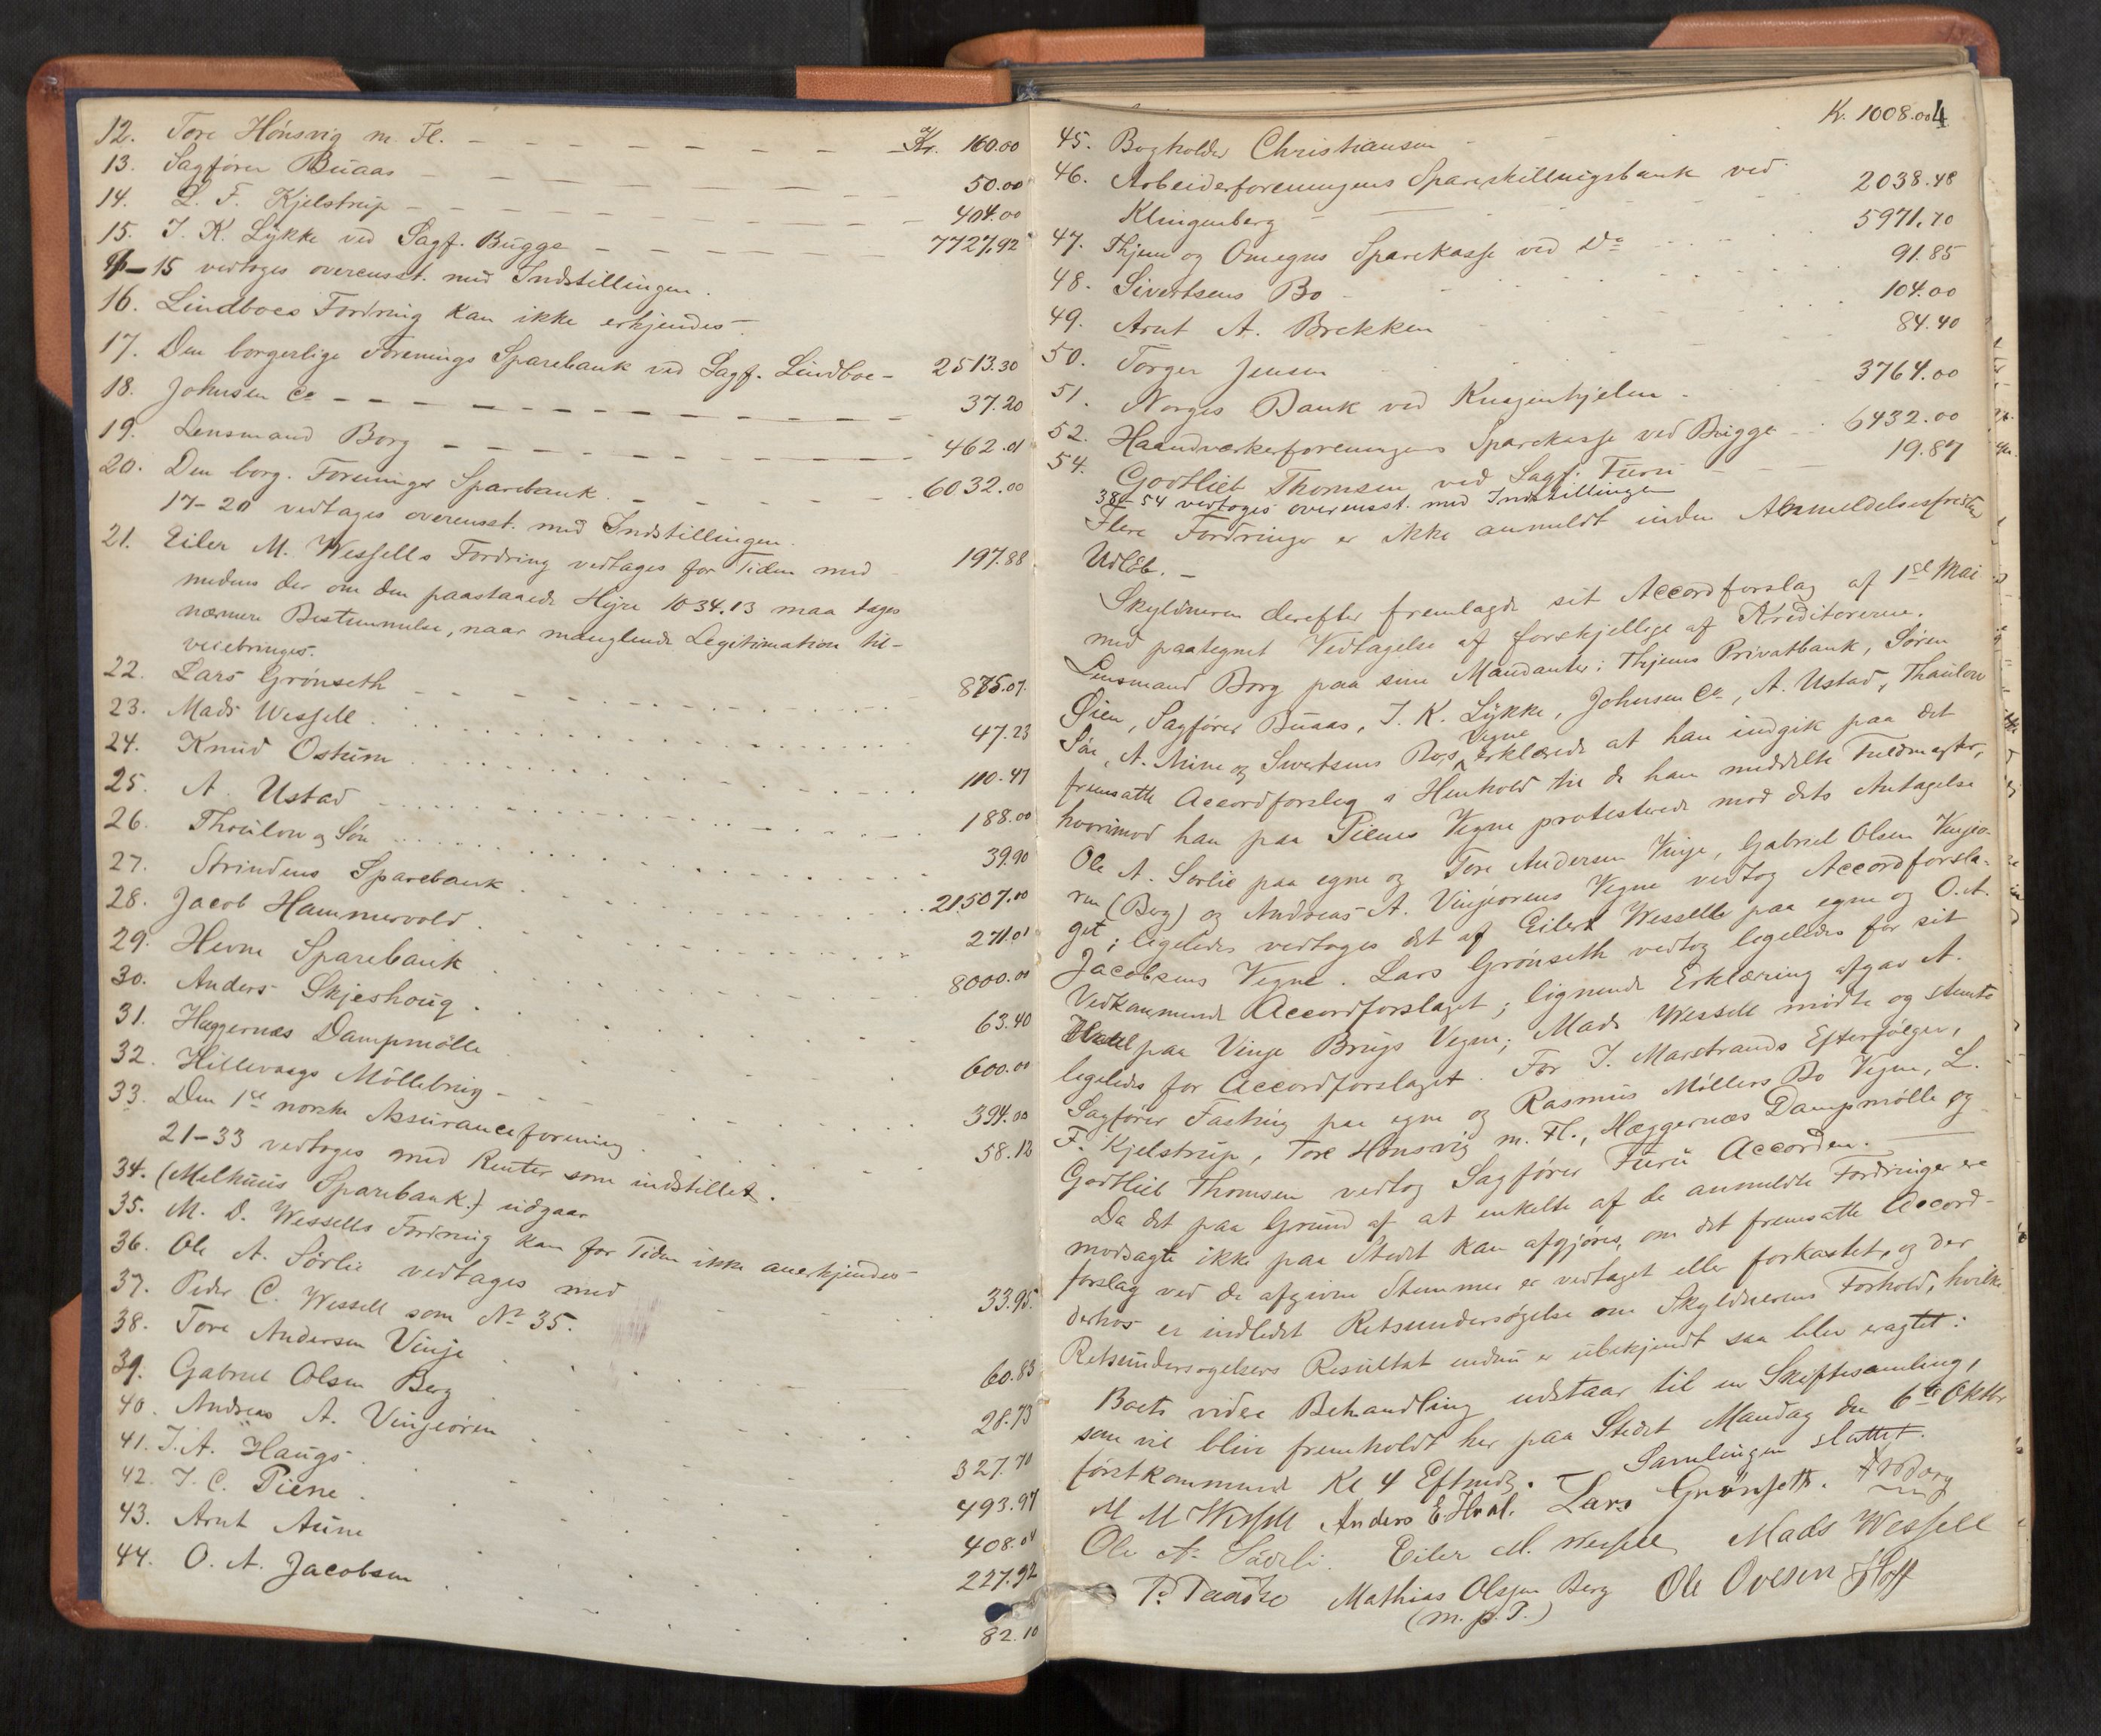 12. Tore Hönsvig m. Fl. Kr. 160.00
13. Sagfører Buaas 50.00
14. L. F. Kjelstrup 404.00
15. J. K. Lykke ved Sagf. Bugge 7727.92
15 vedtages overensst. med Indstillingen.
16. Lindboes Fordring kan ikke erkjendes.
17. Den borgerlige Forenings Sparebank ved Sagf. Lindboe 2513.30
18. Johnsen Co 37.20
19. Lensmand Borg 462.01
20. Den borg. Forenings Sparebank 6032.00
17-20 vedtages overensst. med Indstillingen.
21. Eiler M. Wessells Fordring vedtages for Tiden med 197.88
medens der om den paastaaede Hyre 1034.13 maa tages
nærmere Bestemmelse, naar manglende Legitimation til-
veiebringes.
22. Lars Grönseth 875.07
23. Mads Wessell 47.23
24. Knud Ostum 110.47
25. A. Ustad 188.00
26. Thaulow og Sön 39.90
27. Strindens Sparebank 21507.00
28. Jacob Hammervold 271.01
29. Hevne Sparebank 8000.00
30. Anders Skjeshoug 63.40
31. Hæggernæs Dampmölle 600.00
32. Hillevaags Möllebrug 394.00
33. Den 1ste norske Assuranceforening 58.12
21-33 vedtages med Renter som indstillet.
34. (Melhuus Sparebank.) udgaar
35. M. D. Wessells Fordring kan for Tiden ikke anerkjendes
36. Ole A. Sörlie vedtages med 33.95
37. Peder C. Wessell som No 35.
38. Tore Andersen Vinje 60.83
39. Gabriel Olsen Berg 28.73
40. Andreas A. Vingeören 327.70
41. J. A. Haugs 493.97
42. J. C. Piene 408.04
43. Arnt Aune 227.92
44. O. A. Jacobsen 82.10
4
45. Bogholder Christiansen Kr. 1008.00
46. Arbeiderforeningens Spareskillingsbank ved
Klingenberg 2038.48
47. Thjem og Omegns Sparekasse ved Do 5971.70
48. Sivertsens Bo 91.85
49. Arnt A. Brekken 104.00
50. Torger Jensen 84.40
51. Norges Bank ved Knagenhjelm 3764.00
52. Haandværkerforeningens Sparekasse ved Bugge 6432.00
54. Gottlieb Thomsen ved Sagf. Furu 19.87
38-54 vedtages overensst. med Indstillingen
Flere Fordringer er ikke anmeldt inden Anmeldelsesfristens
Udlöb.
Skyldneren derefter fremlagde sit Accordforslag af 1ste Mai
med paategnet Vedtagelse af forskjellige af Kreditorerne.
Lensmand Borg paa sine Mandanter: Thjems Privatbank, Sören
Øien, Sagfører Buaas, J. K. Lykke, Johnsen Co, A. Ustad, Thaulow
Sön, A. Aune og Sivertsens Bos Vegne erklærede at han indgik paa det
fremsatte Accordforslag i Henhold til de ham meddelte Fuldmagter,
hvorimod han paa Pienes Vegne protesterede mod dets Antagelse
Ole A. Sørlie paa egne og Tore Andersen Vinje, Gabriel Olsen Vinjeö-
ren (Berg) og Andreas A. Vinjeørens Vegne vedtog Accordforsla-
get; ligeledes vedtages det af Eiler Wesselle paa egne og O. A.
Jacobsens Vegne. Lars Grönseth vedtog ligeledes for sit
Vedkommende Accordforslaget; lignende Erklæring afgav A.
Hval paa Vinje Brugs Vegne; Mads Wessell mødte og stemte
ligeledes for Accordforslaget. For J. Marstrands Efterfölger,
Sagfører Fasting paa egne og Rasmus Möllers Bo Vegne, L.
F. Kjelstrup, Tore Hönsvig m. Fl., Hæggernæs Dampmölle og
Gottlieb Thomsen vedtog Sagförer Furu Accorden.
Da det paa Grund af at enkelte af de anmeldte Fordringer ere
modsagte ikke paa Stedet kan afgjöres, om det fremsatte Accord-
forslag ved de afgivne Stemmer er vedtaget eller forkastet, og der
derhos er indledet Retsundersøgelse om Skyldnerens Forhold, hvilken
Retsundersøgelses Resultat endnu er ubekjendt saa blev eragtet:
Boets videre Behandling udstaar til en Skiftesamling,
som vil blive fremholdt her paa Stedet Mandag den 6te Oktbr
förstkommende Kl 4 Eftmdg. — Samlingen sluttet.
M M Wessell Anders E. Hval. Lars Grønseth. Borg
Ole A. Sörli. Eiler M. Wessell Mads Wessell
Mathias Olssen Berg Ole Ovesen Hoff
(m. p. P.)